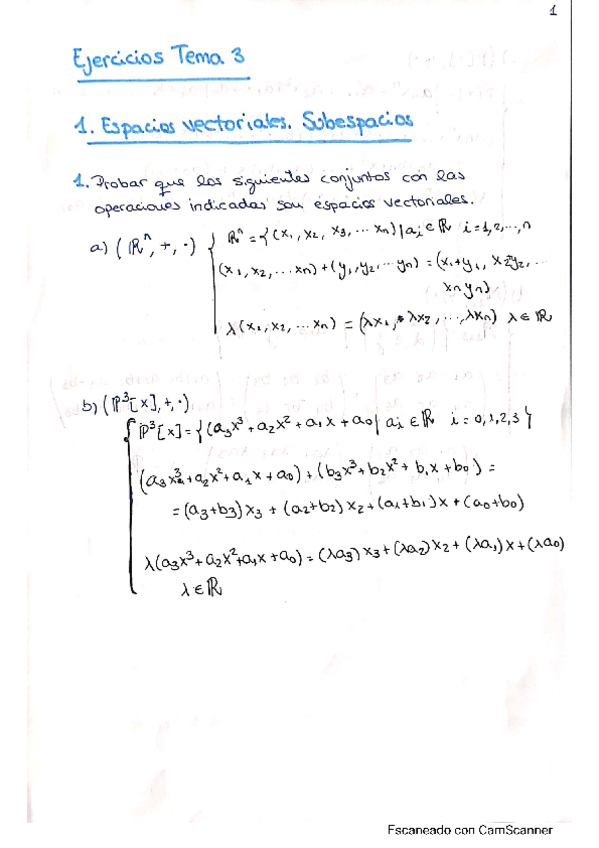 1
Ejercicios Tema 3
1. Espacios vectoriales. Subespacios
1. Probar que los siguientes conjuntos con las
operaciones indicadas son espacios vectoriales.
a) (ℝⁿ, +, ·) { ℝⁿ = {(x₁, x₂, x₃, ... xn) | ai ∈ ℝ i = 1,2,...,n
(x₁, x₂, ... xn) + (y₁, y₂, ... yn) = (x₁+y₁, x₂y₂, ...
xn yn)
λ(x₁, x₂, ... xn) = (λx₁, λx₂, ..., λxn) λ ∈ ℝ
b) (ℙ³[x], +, ·)
{ ℙ³[x] = {(a₃x³ + a₂x² + a₁x + a₀ / ai ∈ ℝ i = 0,1,2,3 }
(a₃x³ + a₂x² + a₁x + a₀) + (b₃x³ + b₂x² + b₁x + b₀) =
= (a₃+b₃)x₃ + (a₂+b₂)x₂ + (a₁+b₁)x + (a₀+b₀)
λ(a₃x³ + a₂x² + a₁x + a₀) = (λa₃)x₃ + (λa₂)x₂ + (λa₁)x + (λa₀)
λ ∈ ℝ
Escaneado con CamScanner